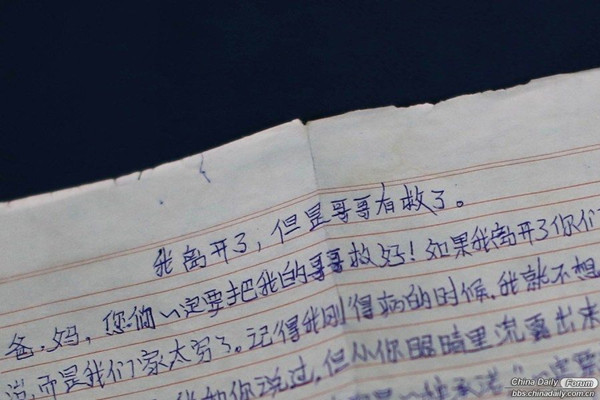 我离开了，但是哥哥有救了。
爸、妈，您们一定要把我的哥哥救好！如果我离开了你们
说，可是我们家太穷了。记得我刚得病的时候，我就不想
你说过，但从你眼睛里流露出来
China Daily Forum
bbs.chinadaily.com.cn